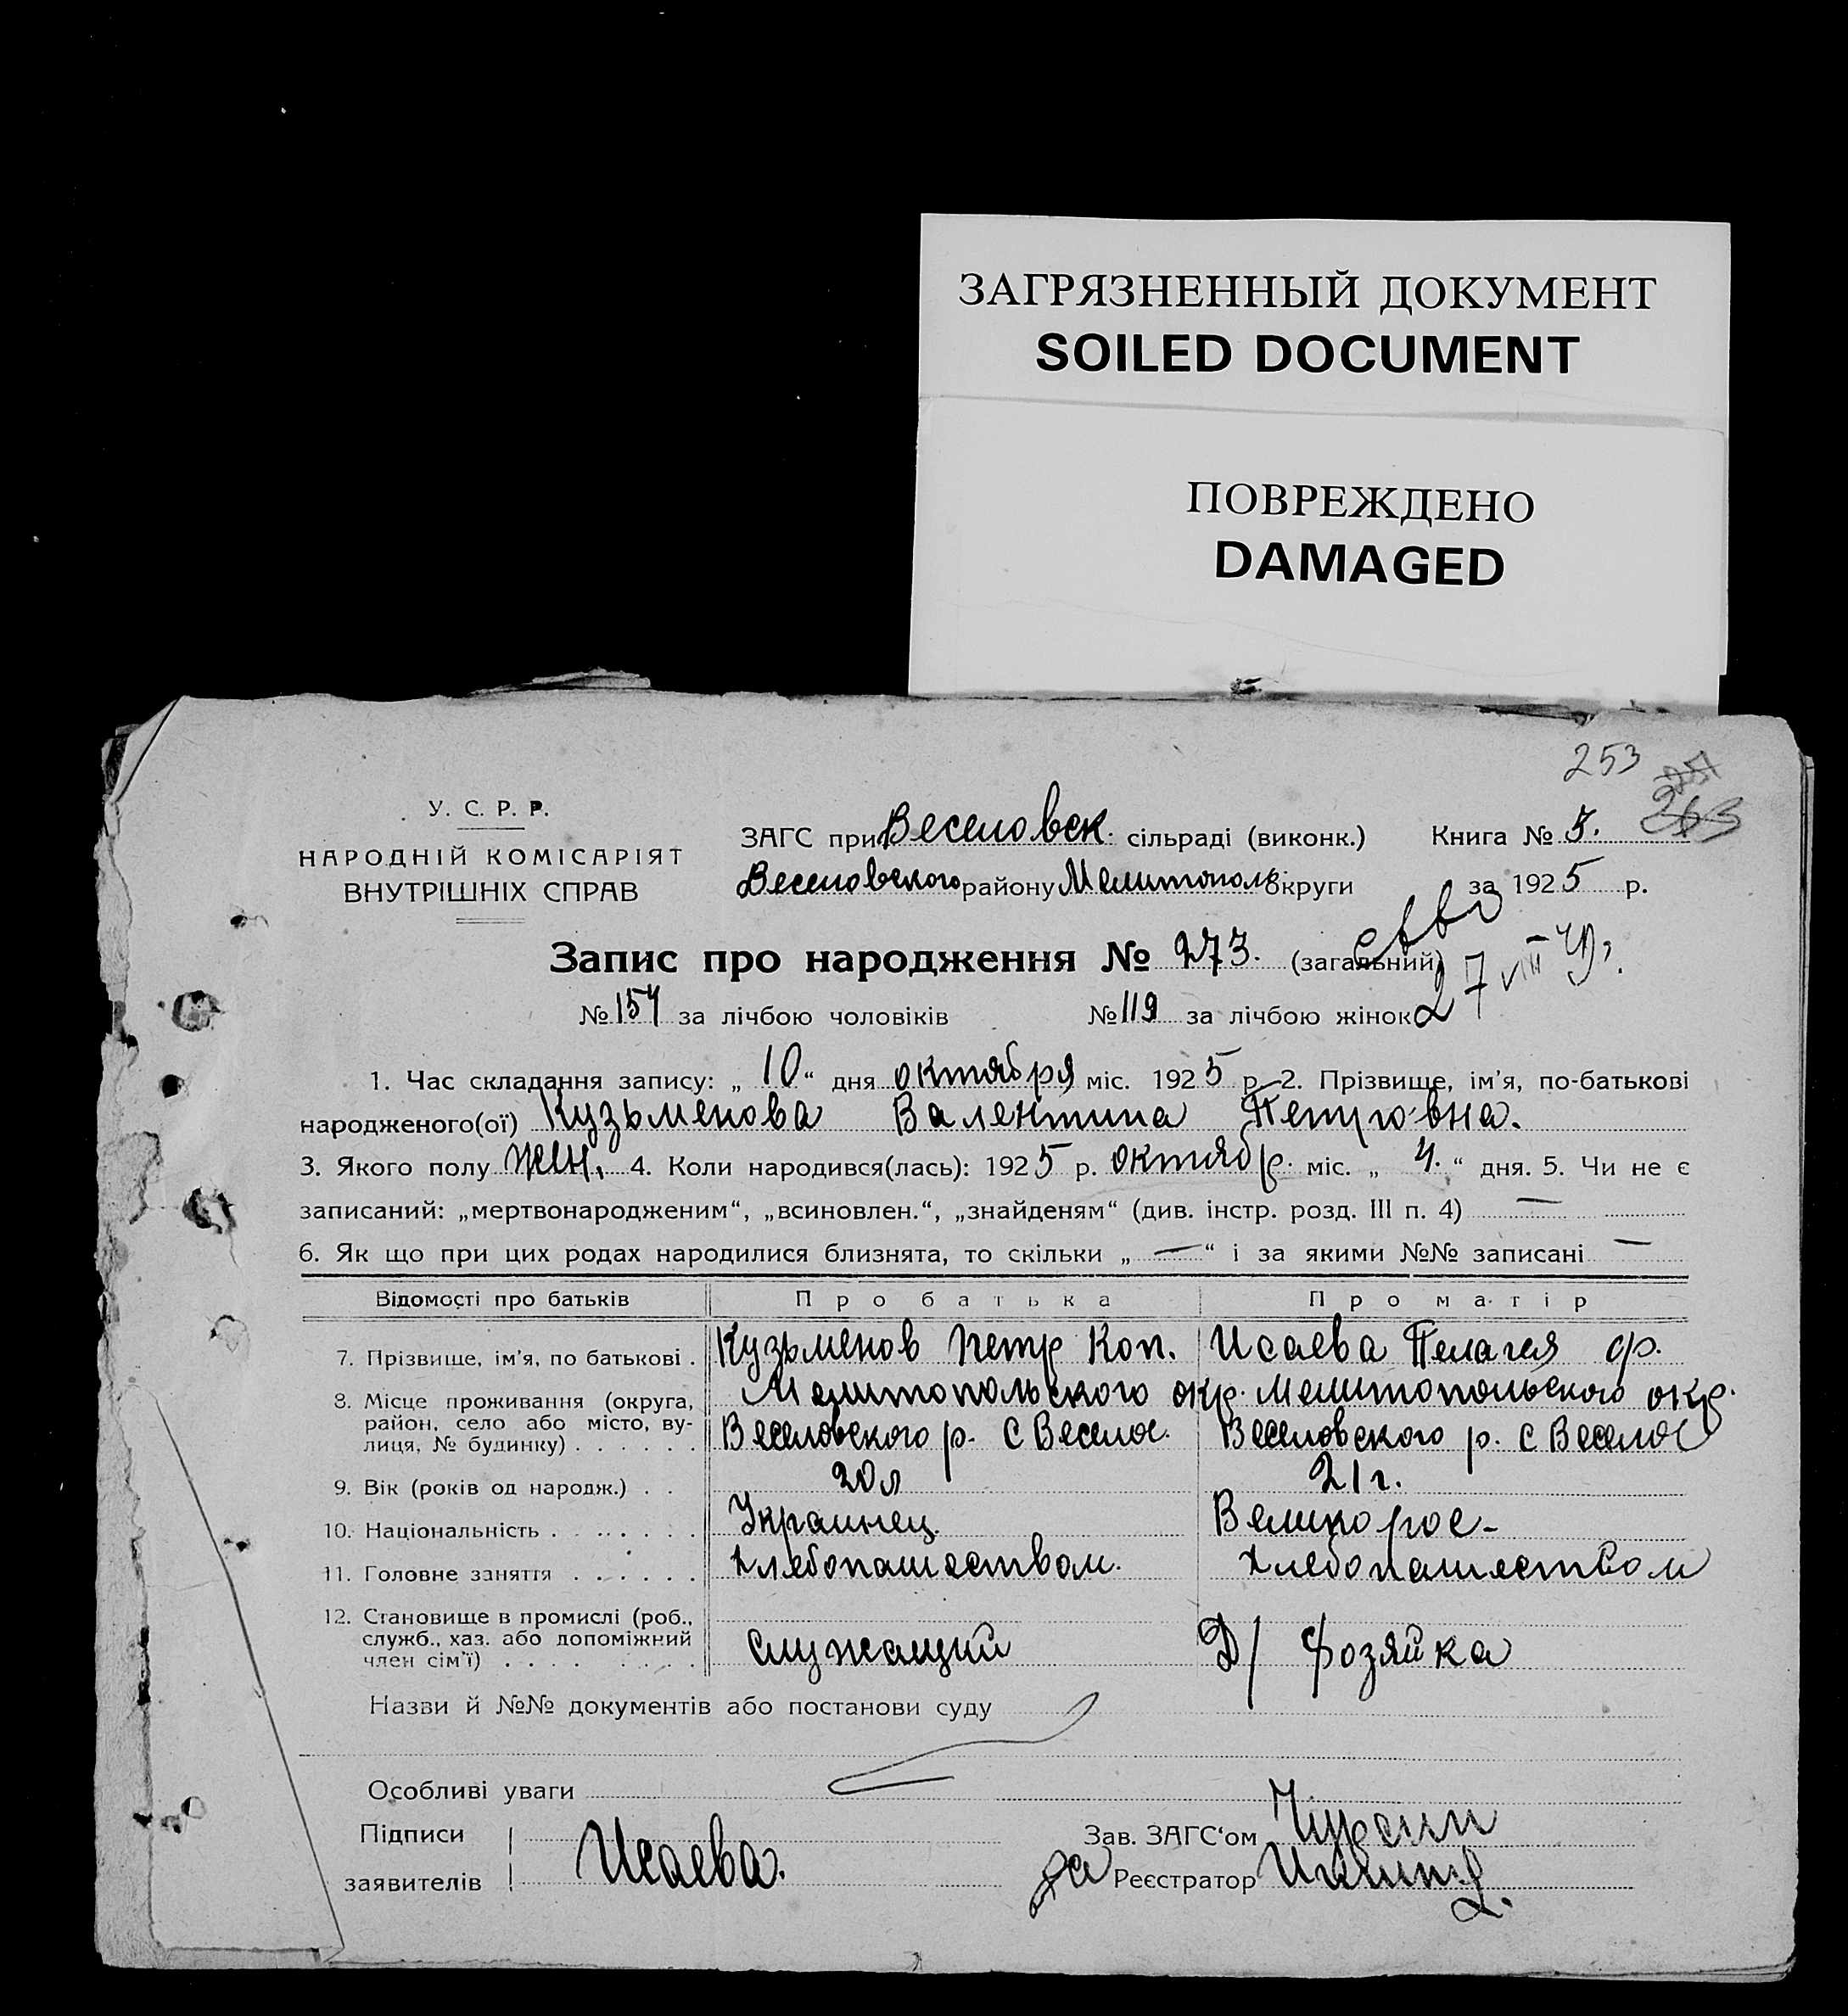 ЗАГРЯЗНЕННЫЙ ДОКУМЕНТ
SOILED DOCUMENT
ПОВРЕЖДЕНО
DAMAGED
253
У. С. Р. Р.
НАРОДНІЙ КОМІСАРІЯТ
ВНУТРІШНІХ СПРАВ
ЗАГС при Веселовск. сільраді (виконк.) Книга № 5.
Веселовского району Мелитополь округи за 1925 р.
Запис про народження № 273. (загальний)
27 VIII 49г.
№ 154 за лічбою чоловіків № 119 за лічбою жінок
1. Час складання запису: „ 10 “ дня октября міс. 1925 р. 2. Прізвище, ім'я, по-батькові
народженого(ої) Кузьменова Валентина Петровна.
3. Якого полу жен. 4. Коли народився(лась): 1925 р. октябр. міс. „ 4. “ дня. 5. Чи не є
записаний: „мертвонародженим“, „всиновлен.“, „знайденям“ (див. інстр. розд. III п. 4) —
6. Як що при цих родах народилися близнята, то скільки „ — “ і за якими №№ записані —
Відомості про батьків Про батька Про матір
7. Прізвище, ім'я, по батькові . Кузьменов Петр Кон. Исаева Пелагея ф.
8. Місце проживання (округа, Мелитопольского окр. Мелитопольского окр.
район, село або місто, ву-
лиця, № будинку) . . . . . . Веселовского р. с Веселое. Веселовского р. с Веселое
9. Вік (років од народж.) . . 20 л 21 г.
10. Національність . . . . . . . Украинец. Великорос-
11. Головне заняття . . . . . . Хлебопашеством. Хлебопашеством
12. Становище в промислі (роб.,
служб., хаз. або допоміжний служащий Д/ Хозяйка
член сім'ї) . . . . . . . .
Назви й №№ документів або постанови суду
Особливі уваги
Підписи
заявителів Исаева.
Зав. ЗАГС‘ом
за Реєстратор